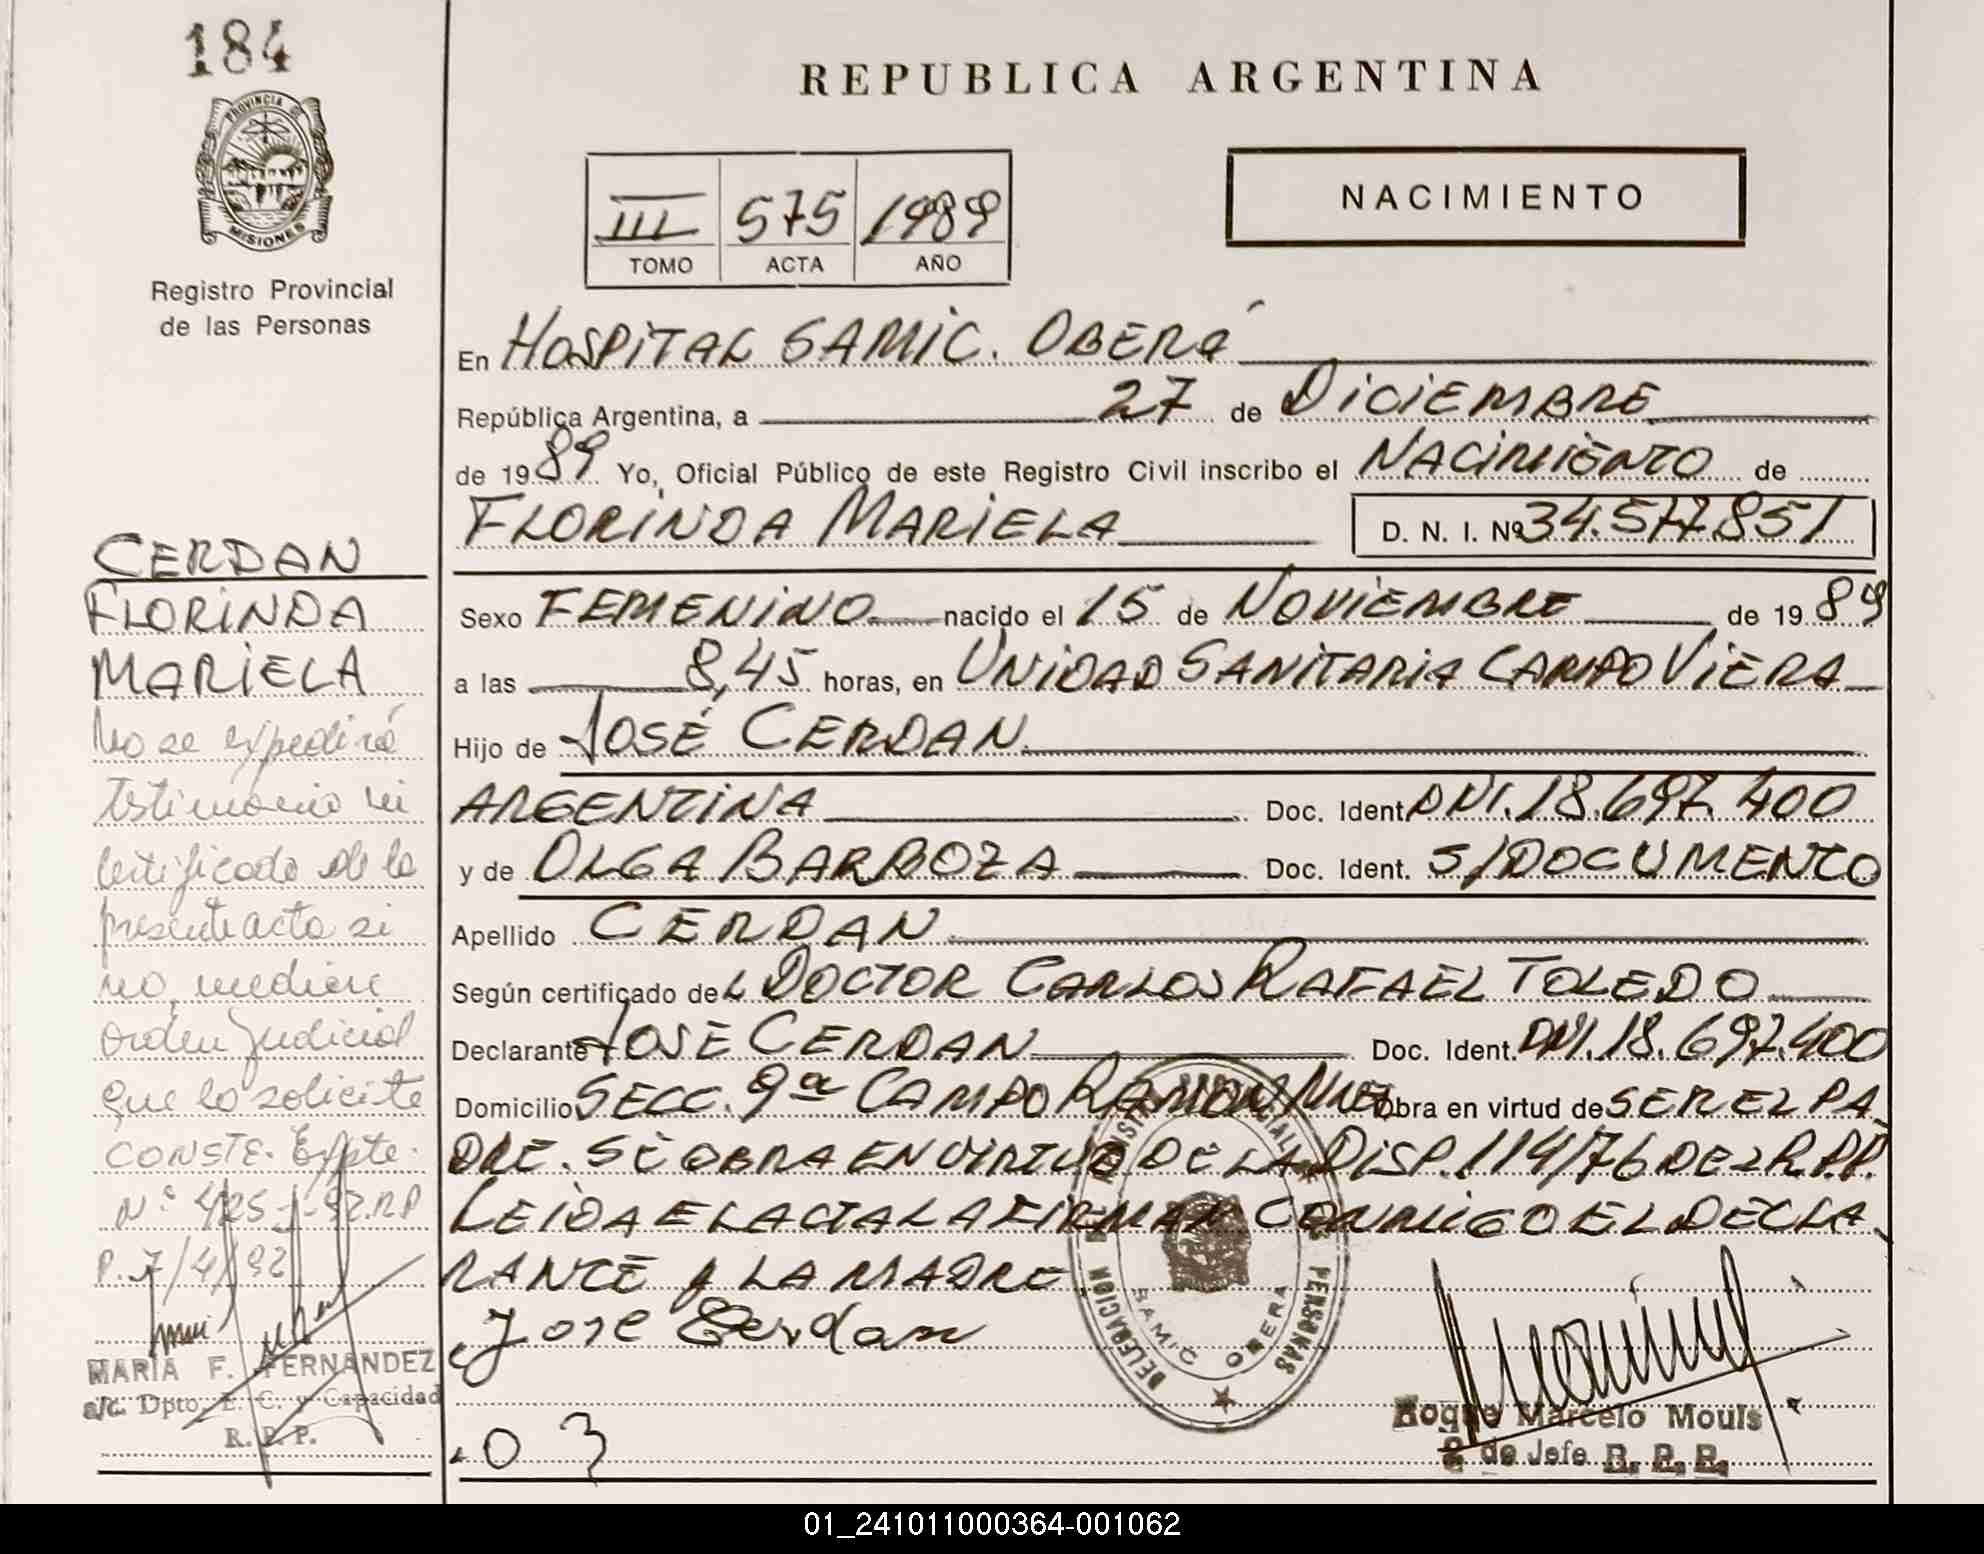 184
PROVINCIA DE
MISIONES
Registro Provincial
de las Personas
CERDAN
FLORINDA
MARIELA
No se expedirá
testimonio ni
certificado de la
presente acta si
no mediare
orden judicial
que lo solicite
CONSTE. Expte.
Nº 425-92.R.P
P. 7/4/92
MARIA F. FERNANDEZ
a/c. Dpto. E. C. y Capacidad
R. P. P.
REPUBLICA ARGENTINA
III 575 1989
TOMO ACTA AÑO
NACIMIENTO
En HOSPITAL SAMIC. OBERÁ
República Argentina, a 27 de DICIEMBRE
de 1989 Yo, Oficial Público de este Registro Civil inscribo el NACIMIENTO de
FLORINDA MARIELA D. N. I. Nº 34.577.851
Sexo FEMENINO nacido el 15 de NOVIEMBRE de 1989
a las 8,45 horas, en UNIDAD SANITARIA CAMPO VIERA
Hijo de JOSÉ CERDAN
ARGENTINA Doc. Ident. DNI. 18.697.400
y de OLGA BARBOZA Doc. Ident. S/DOCUMENTO
Apellido CERDAN
Según certificado deL DOCTOR CARLOS RAFAEL TOLEDO
Declarante JOSE CERDAN Doc. Ident. DNI. 18.697.400
Domicilio SECC. 9ª CAMPO RAMON Obra en virtud de SER EL PA
DRE. SE OBRA EN VIRTUD DE LA DISP. 114/76 DEL R.P.P.
LEIDA EL ACTA LA FIRMAN CONMIGO EL DECLA
RANTE Y LA MADRE
Jose Cerdan
DELEGACION PERSONAS
SAMIC OBERA
Roque Marcelo Mouls
2º de Jefe R. P. P.
01_241011000364-001062